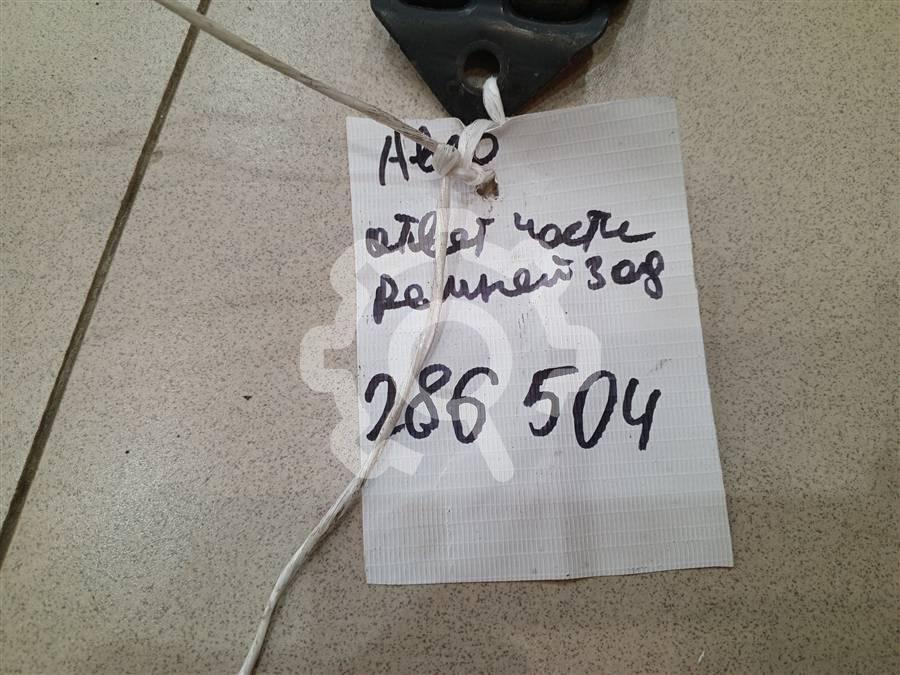 Авео
ответ части
ремней зад
286 504